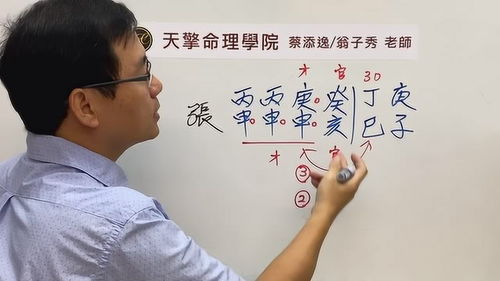 天擎命理學院 蔡添逸/翁子秀 老師
才 官 30
張 丙 丙 庚 癸 丁 庚
申 申 申 亥 巳 子
才 官
③
②